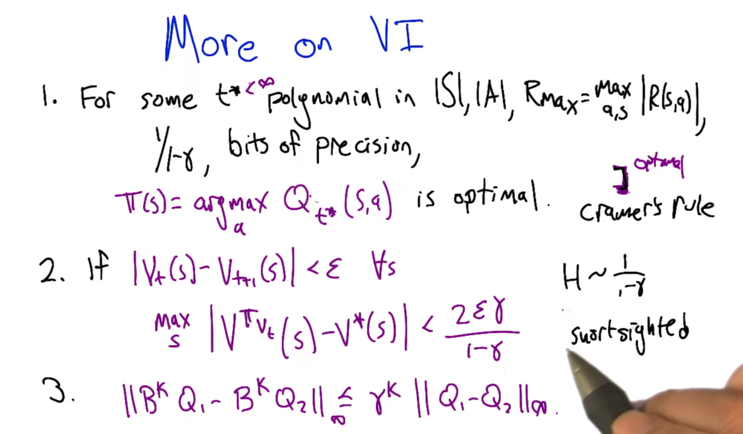 More on VI
1. For some t* < ∞ polynomial in |S|, |A|, Rmax = max a,s |R(s,a)|,
1/1-γ, bits of precision,
π(s) = argmax a Q t* (s,a) is optimal.
optimal
cramer's rule
2. If |Vt(s) - Vt+1(s)| < ε ∀s
max s |V^πVt (s) - V*(s)| < 2εγ / 1-γ
H ~ 1 / 1-γ
shortsighted
3. ||B^K Q1 - B^K Q2||∞ ≤ γ^K ||Q1 - Q2||∞.